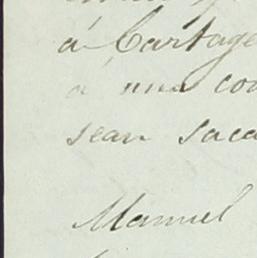 á Cartage
a una coo
sean saca
Manuel